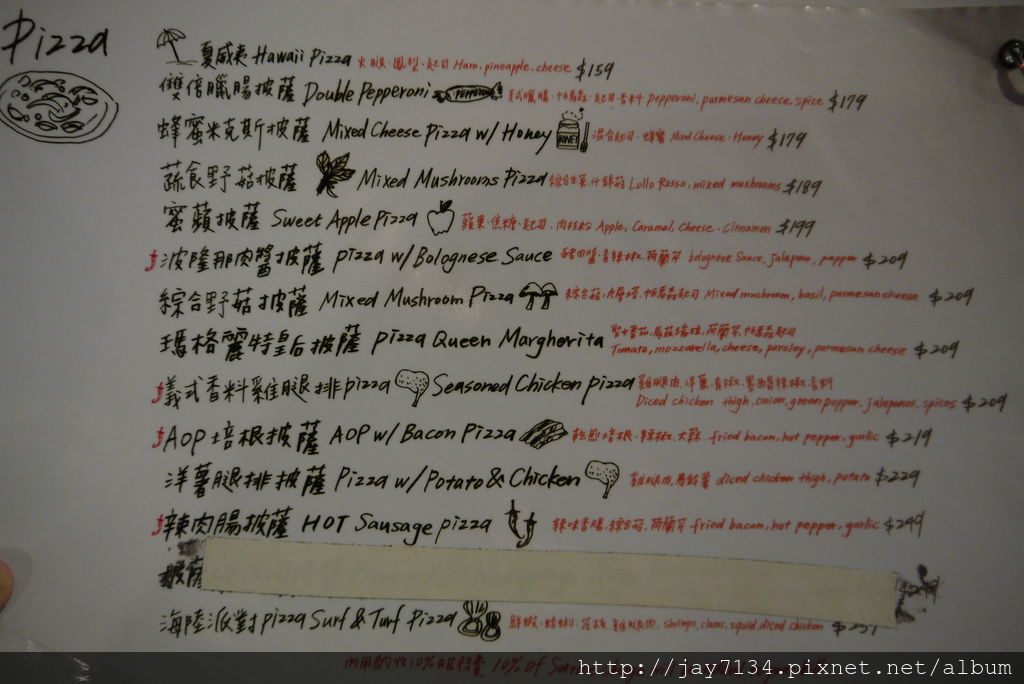 Pizza
夏威夷 Hawaii Pizza 火腿、鳳梨、起司 Ham, pineapple, cheese $159
雙倍臘腸披薩 Double Pepperoni PEPPERONI 美式臘腸、帕馬森、起司、香料 pepperoni, parmesan cheese, spice $179
蜂蜜米克斯披薩 Mixed Cheese Pizza w/ Honey HONEY 混合起司、蜂蜜 Mixed Cheese、Honey $179
蔬食野菇披薩 Mixed Mushrooms Pizza 綜合生菜、什錦菇 Lollo Rosso, mixed mushrooms $189
蜜蘋披薩 Sweet Apple Pizza 蘋果、焦糖、起司、肉桂粉 Apple, Caramel, Cheese、Cinnamon $199
波隆那肉醬披薩 pizza w/ Bolognese Sauce 肉醬、青辣椒、荷蘭芹 bolognese Sauce, jalapeno, pepper $209
綜合野菇披薩 Mixed Mushroom Pizza 綜合菇、九層塔、帕馬森起司 Mixed mushroom, basil, parmesan cheese $209
瑪格麗特皇后披薩 pizza Queen Margherita 聖女番茄、馬茲瑞拉、荷蘭芹、帕馬森起司
Tomato, mozzarella, cheese, parsley, parmesan cheese $209
義式香料雞腿排pizza Seasoned Chicken pizza 雞腿肉、洋蔥、青椒、墨西哥辣椒、香料
Diced chicken thigh, onion, green pepper, jalapenos, spices $209
AOP培根披薩 AOP w/ Bacon Pizza 乾煎培根、辣椒、大蒜 fried bacon, hot pepper, garlic $219
洋薯腿排披薩 Pizza w/ Potato & Chicken 雞腿肉、馬鈴薯 diced chicken thigh, potato $229
辣肉腸披薩 HOT Sausage pizza 辣味香腸、綜合菇、荷蘭芹 fried bacon, hot pepper, garlic $249
披薩
海陸派對pizza Surf & Turf Pizza 鮮蝦、蛤蜊、花枝、雞腿肉 shrimps, clams, squid, diced chicken
內用酌收10%服務費 10% Of
http://jay7134.pixnet.net/album